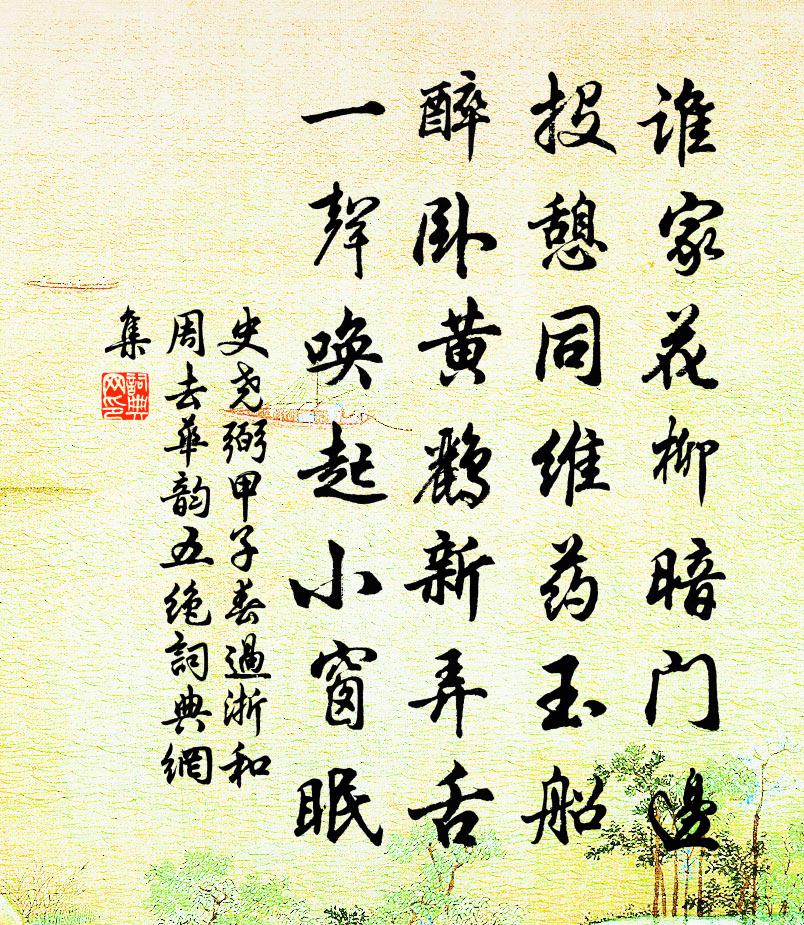 誰家花柳暗门邊
投憩同维药玉船
醉卧黄鹂新弄舌
一聲唤起小窗眠
史尧弼甲子春過浙和
周去華韵五绝詞典網
集
詞典网印